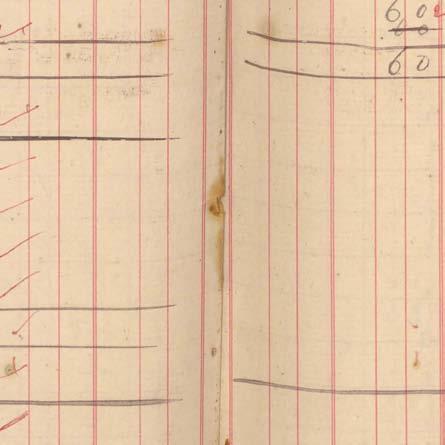 6 0
6 0
6 0